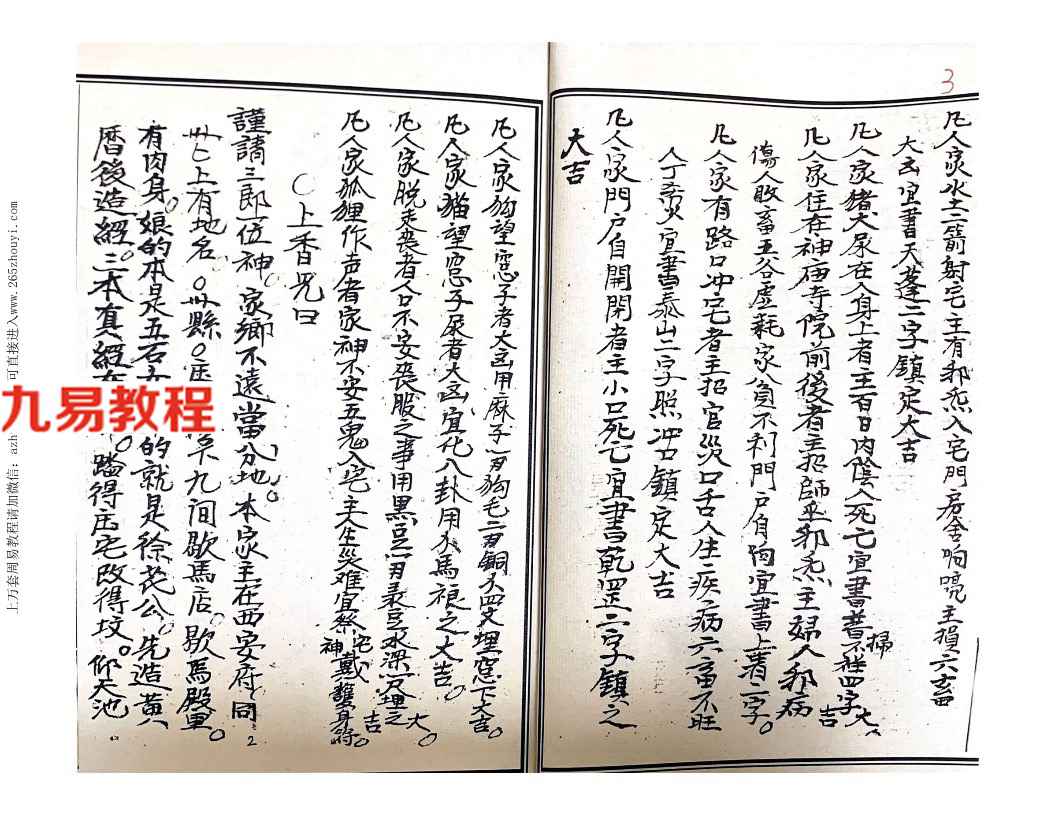 3
凡人家水土二箭射宅主有邪炁入宅門房舍响喨主損六畜
大凶宜書天蓬二字鎮定大吉
凡人家猪犬尿在人身上者主百日內陰人死亡宜書掃不祥四字大吉
凡人家住在神庙寺院前後者主招師巫邪炁主婦人邪病
傷人败畜五谷虛耗家貧不利門戶自陶宜書上着二字。
凡人家有路口冲宅者主招官災口舌人生疾病六畜不旺
人丁希少宜書泰山二字照冲口鎮定大吉
凡人家門戶自開閉者主小口死亡宜書乾罡二字鎮之
大吉
凡人家狗望窓子者大凶用麻子一刃狗毛二刃銅不四文埋窓下大吉。
凡人家猫望窓子尿者大凶宜化八卦用水馬粮之大吉。
凡人家脱走喪者人口不安喪服之事用黑豆一刃菉豆水深一尺埋之大吉。
凡人家狐狸作声者家神不安五鬼入宅主人生災难宜祭宅神戴護身符。
〇上香咒曰
謹請三郎一位神。家鄉不遠當分地。本家主在西安府同
州上有地名。〇州縣〇店
下九间歇馬店。歇馬殿里。
有肉身。娘的本是五石
的就是徐茂公。先造黄
曆後造經。三本真經
踏得店宅改得坟。仰天池
九易教程
上万套周易教程请加微信：azh
可直接进入www.265zhouyi.com